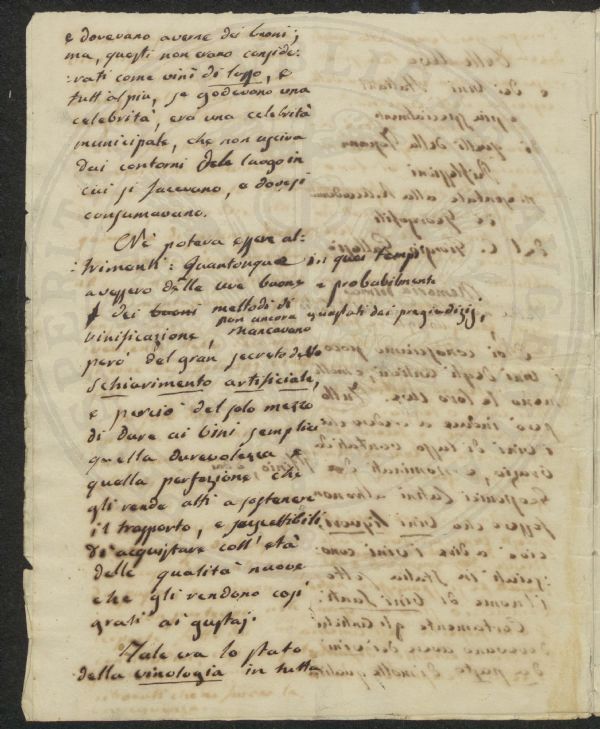 e dovevano averne dei buoni;
ma, questi non erano conside-
:rati come vini di lusso, e
tutt'al più, se godevano una
celebrità, era una celebrità
municipale, che non usciva
dai contorni del luogo in
cui si facevano, e dove si
consumavano.
Nè poteva essere al-
:trimenti: Quantunque in quei tempi
avessero delle uve buone e probabilmente
dei buoni mettodi di
non ancora guastati dei pregiudizij,
vinificazione, mancavano
però del gran secreto dello
schiarimento artificiale,
e perciò del solo mezzo
di dare ai vini semplici
quella durevolezza e
quella perfezione che
gli rende atti a sostenere
il trasporto, e suscettibili
d'acquistare coll'età
delle qualità nuove
che gli rendono così
grati ai gustaj.
Tale era lo stato
della vinologia in tutta